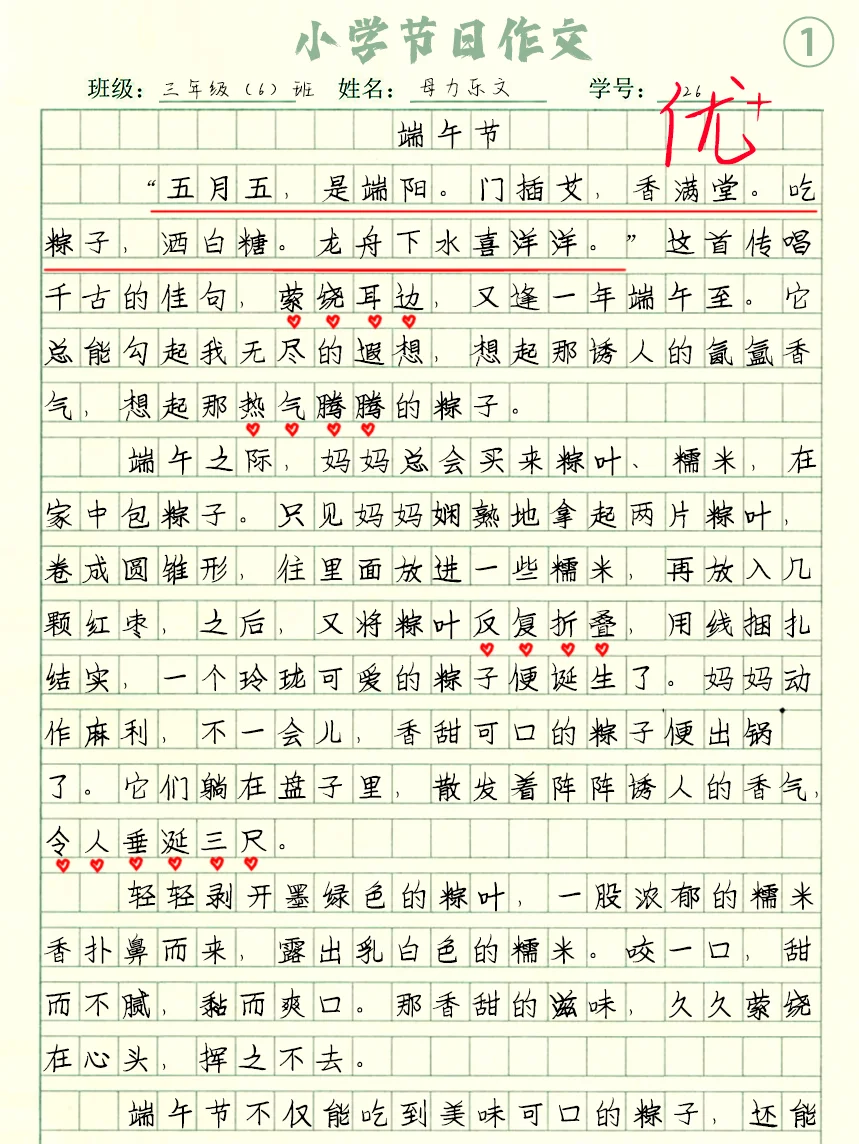 小学节日作文
1
班级：三年级（6）班 姓名：母力乐文 学号：26
优+
端午节
“五月五，是端阳。门插艾，香满堂。吃
粽子，洒白糖。龙舟下水喜洋洋。”这首传唱
千古的佳句，萦绕耳边，又逢一年端午至。它
总能勾起我无尽的遐想，想起那诱人的氤氲香
气，想起那热气腾腾的粽子。
端午之际，妈妈总会买来粽叶、糯米，在
家中包粽子。只见妈妈娴熟地拿起两片粽叶，
卷成圆锥形，往里面放进一些糯米，再放入几
颗红枣，之后，又将粽叶反复折叠，用线捆扎
结实，一个玲珑可爱的粽子便诞生了。妈妈动
作麻利，不一会儿，香甜可口的粽子便出锅
了。它们躺在盘子里，散发着阵阵诱人的香气，
令人垂涎三尺。
轻轻剥开墨绿色的粽叶，一股浓郁的糯米
香扑鼻而来，露出乳白色的糯米。咬一口，甜
而不腻，黏而爽口。那香甜的滋味，久久萦绕
在心头，挥之不去。
端午节不仅能吃到美味可口的粽子，还能